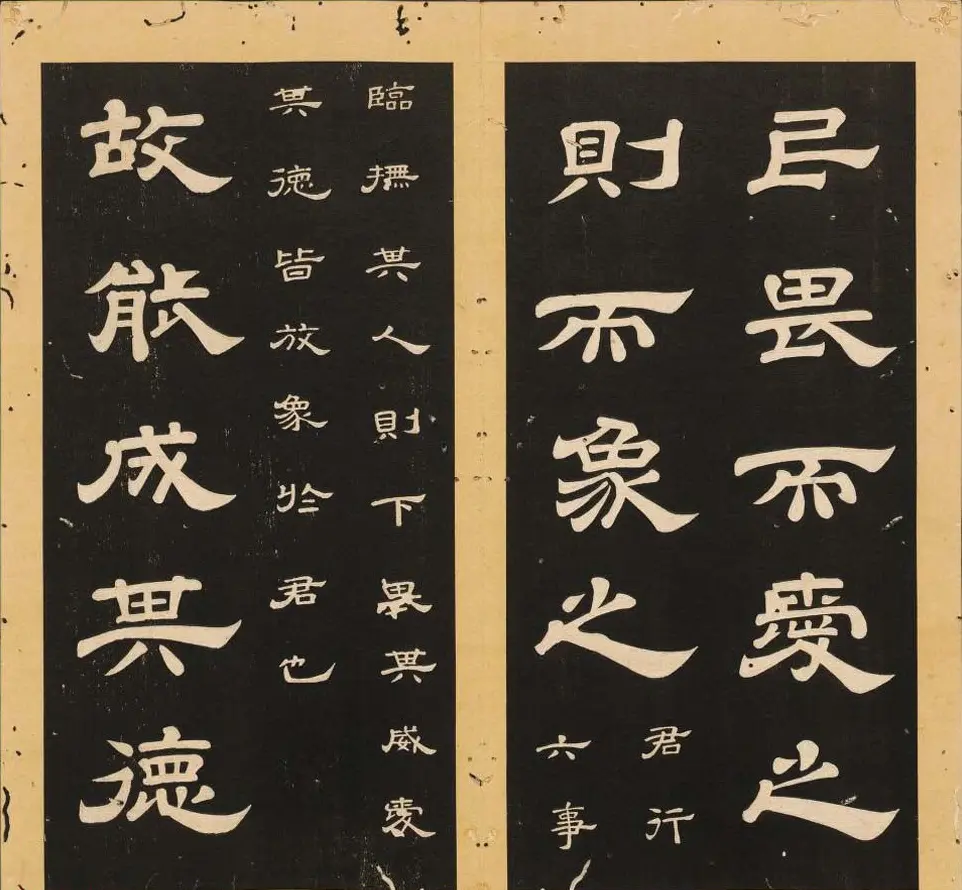 民畏而愛之
則而象之
君行
六事
臨撫其人則下畏其威愛
其德皆放象於君也
故能成其德